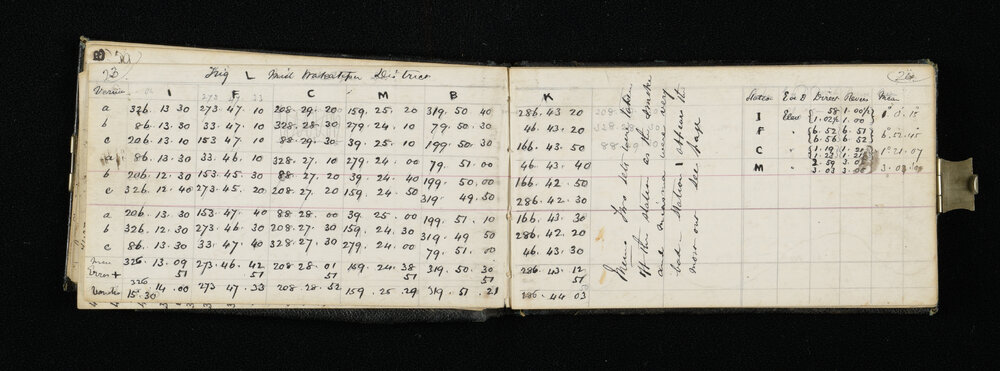 23
Trig L Mid Wakatipu District
Vernier I F C M B K
a 326. 13 30 273. 47. 10 208. 29. 20 159. 25. 20 319. 50 40 286. 43 20
b 86. 13 30 33. 47. 10 328. 28. 30 279. 24. 10 79. 50. 30 46. 43. 20
c 206. 13. 10 153 47. 10 88. 29. 30 39. 25. 10 199. 50. 30 166. 43. 50
86. 13. 30 33. 46. 10 328. 27. 10 279. 24. 00 79. 51. 00 46. 43. 40
b 206. 12. 30 153. 45. 30 88. 27. 20 39. 24. 40 199. 50. 00 166. 42. 50
c 326. 12. 40 273. 45. 20 208. 27. 20 159. 24. 50 319. 49. 50 286. 42. 30
a 206. 13. 30 153. 47. 40 88. 28. 00 39. 25. 00 199. 51. 10 166. 43. 30
b 326. 12. 30 273. 46. 30 208. 27. 30 159. 24. 30 319. 49. 50 286. 42. 20
c 86. 13. 30 33. 47. 40 328. 27. 30 279. 24. 00 79. 51. 00 46. 43. 30
mean 326. 13. 09 273. 46. 42 208. 28. 01 159. 24. 38 319. 50. 30 286. 43. 12
+ 51 51 51 51 51
326
14. 00 273. 47. 33 208. 28. 52 159. 25. 29 319. 51. 21 44 03
15. 30
sets were taken
at the station as the smoke
and were very
bad station I appears the
over see page
Station E or D Direct Revers Mean
I Elev 58 1.00
1.02 1.00
F 6.52 6.51
6.56 6.52
C 1.19 1.21
1.22 1.21 1°. 21. 07
M 2.59 3.0
3.03 3.05